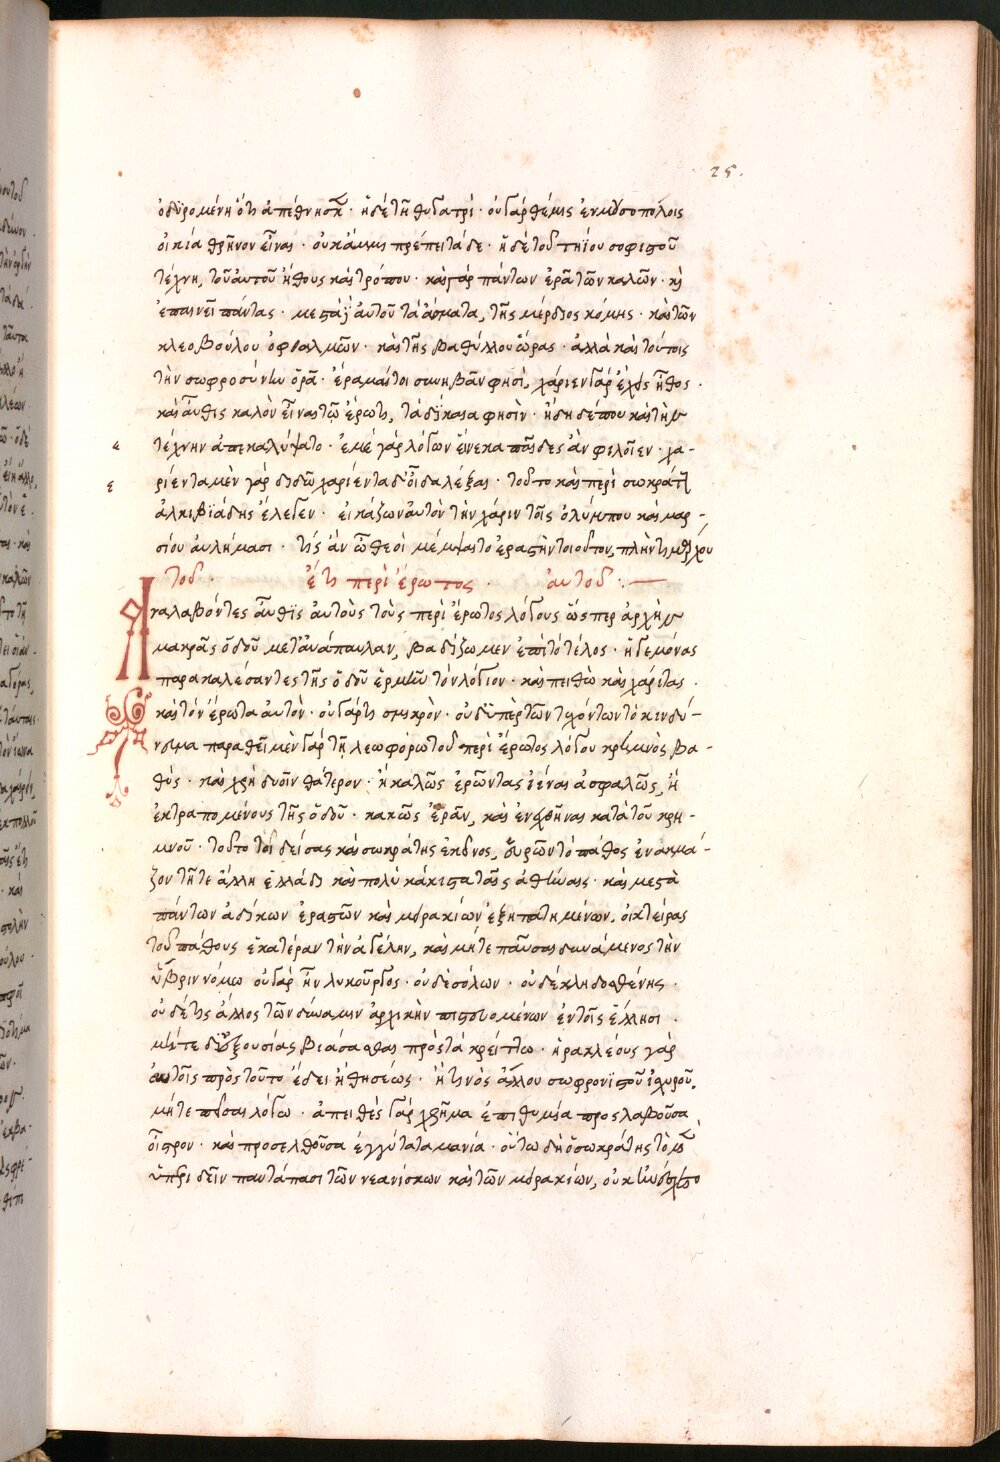 25.
ὀδυρομένη ὅτι ἀπέθνησκε · ἡ δὲ τῇ θυγατρί · οὐ γὰρ θέμις ἐν μουσοπόλοις
οἰκία θρῆνον εἶναι · οὐκ ἄμμι πρέπει τάδε · ἡ δὲ τοῦ τηΐου σοφιστοῦ
τέχνη, τοῦ αὐτοῦ ἤθους καὶ τρόπου · καὶ γὰρ πάντων ἐρᾷ τῶν καλῶν · καὶ
ἐπαινεῖ πάντας · μεστὰ αὐτοῦ τὰ ᾄσματα, τῆς μέρδιος κόμης · καὶ τῶν
κλεοβούλου ὀφθαλμῶν · καὶ τῆς βαθύλλου ὥρας · ἀλλὰ καὶ τούτοις
τὴν σωφροσύνην ὅρα · ἔραμαί τοι συνηβᾶν φησί, χάριεν γὰρ ἔχεις ἦθος ·
καὶ αὖθις καλὸν εἶναι τῷ ἔρωτι, τὰ δίκαια φησὶν · ἤδη δέ που καὶ τὴν
τέχνην ἀπεκαλύψατο · ἐμὲ γὰρ λόγων εἵνεκα παῖδες ἂν φιλοῖεν · χα-
ρίεντα μὲν γὰρ διδῶ χαρίεντα δ' οἶδα λέξαι · τοῦτο καὶ περὶ σωκράτους
ἀλκιβιάδης ἔλεγεν · εἰκάζων αὐτὸν τὴν χάριν τοῖς ὀλύμπου καὶ μαρ-
σίου αὐλήμασι · τίς ἂν ὦ θεοὶ μέμψαιτο ἐραστὴν τοιοῦτον, πλὴν τιμάρχου
τοῦ · ἔτι περὶ ἔρωτος · αὐτοῦ :-
Ἀναλαβόντες αὖθις αὐτοὺς τοὺς περὶ ἔρωτος λόγους ὥσπερ ἀρχὴν
μακρᾶς ὁδοῦ μετ' ἀνάπαυλαν, βαδίζωμεν ἐπὶ τὸ τέλος · ἡγεμόνας
παρακαλέσαντες τῆς ὁδοῦ ἑρμῆν τὸν λόγιον · καὶ πειθὼ καὶ χάριτας ·
καὶ τὸν ἔρωτα αὐτὸν · οὐ γάρ τι σμικρὸν · οὐδ' ὑπὲρ τῶν τυχόντων τὸ κινδύ-
νευμα παραθεῖ μὲν γὰρ τῇ λεωφόρῳ τοῦ περὶ ἔρωτος λόγου κρημνὸς βα-
θὺς · καὶ χρὴ δυοῖν θάτερον · ἢ καλῶς ἐρῶντας ἰέναι ἀσφαλῶς, ἢ
ἐκτραπομένους τῆς ὁδοῦ · κακῶς ἐρᾶν, καὶ ἐνεχθῆναι κατὰ τοῦ κρη-
μνοῦ · τοῦτό τοι δείσας καὶ σωκράτης ἐκεῖνος, εὑρὼν τὸ πάθος ἐνακμά-
ζον τῇ τε ἄλλῃ ἑλλάδι καὶ πολὺ κάκιστα ταῖς ἀθήναις · καὶ μεστὰ
πάντων ἀδίκων ἐραστῶν καὶ μειρακίων ἐξηπατημένων. οἰκτείρας
τοῦ πάθους ἑκατέραν τὴν ἀγέλην, καὶ μήτε παῦσαι δυνάμενος τὴν
ὕβριν νόμῳ οὐ γὰρ ἦν λυκοῦργος · οὐδὲ σόλων · οὐδὲ κλεισθένης ·
οὐδέ τις ἄλλος τῶν δύναμιν ἀρχικὴν πιστευομένων ἐν τοῖς ἕλλησι ·
μήτε δι' ἐξουσίας βιάσασθαι πρὸς τὰ κρείττω · ἡρακλέους γὰρ
αὐτοῖς πρὸς τοῦτο ἔδει ἢ θησέως · ἤ τινος ἄλλου σωφρονιστοῦ ἰσχυροῦ.
μήτε πεῖσαι λόγῳ · ἀπειθὲς γὰρ χρῆμα ἐπιθυμία προσλαβοῦσα
οἶστρον · καὶ προσελθοῦσα ἐγγύτατα μανία · οὕτω δὴ ὁ σωκράτης τὸ μὲν
ὑπεριδεῖν παντάπασι τῶν νεανίσκων καὶ τῶν μειρακίων, οὐκ ἠνέσχετο